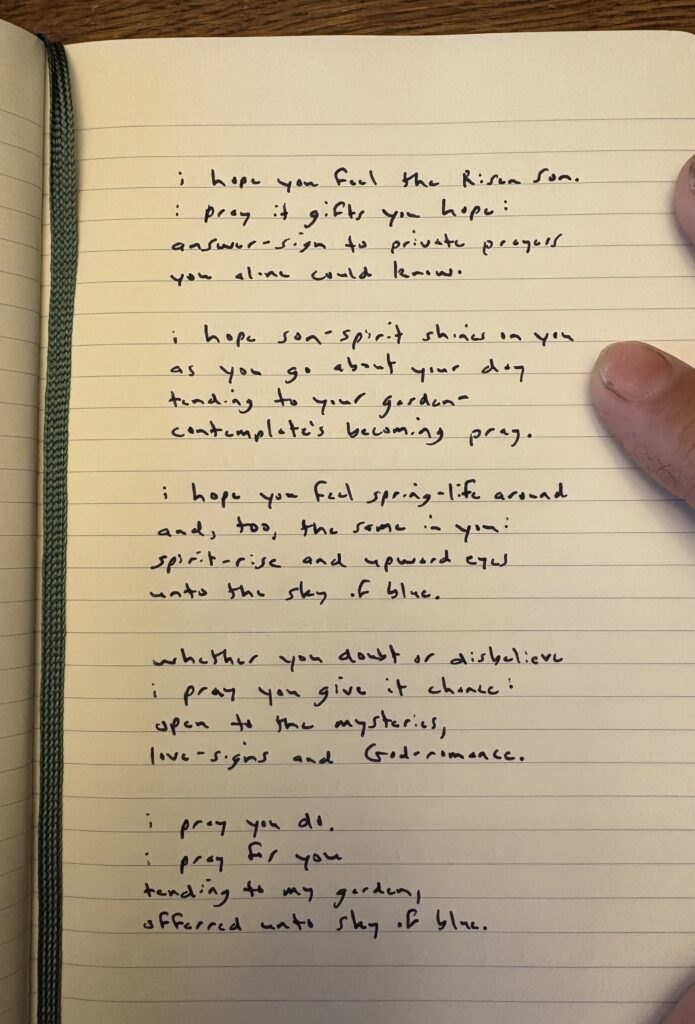 i hope you feel the Risen Son.
i pray it gifts you hope:
answer-sign to private prayers
you alone could know.
i hope son-spirit shines on you
as you go about your day
tending to your garden-
contemplate's becoming pray.
i hope you feel spring-life around
and, too, the same in you:
spirit-rise and upward eyes
unto the sky of blue.
whether you doubt or disbelieve
i pray you give it chance:
open to the mysteries,
love-signs and God-romance.
i pray you do.
i pray for you
tending to my garden,
offerred unto sky of blue.